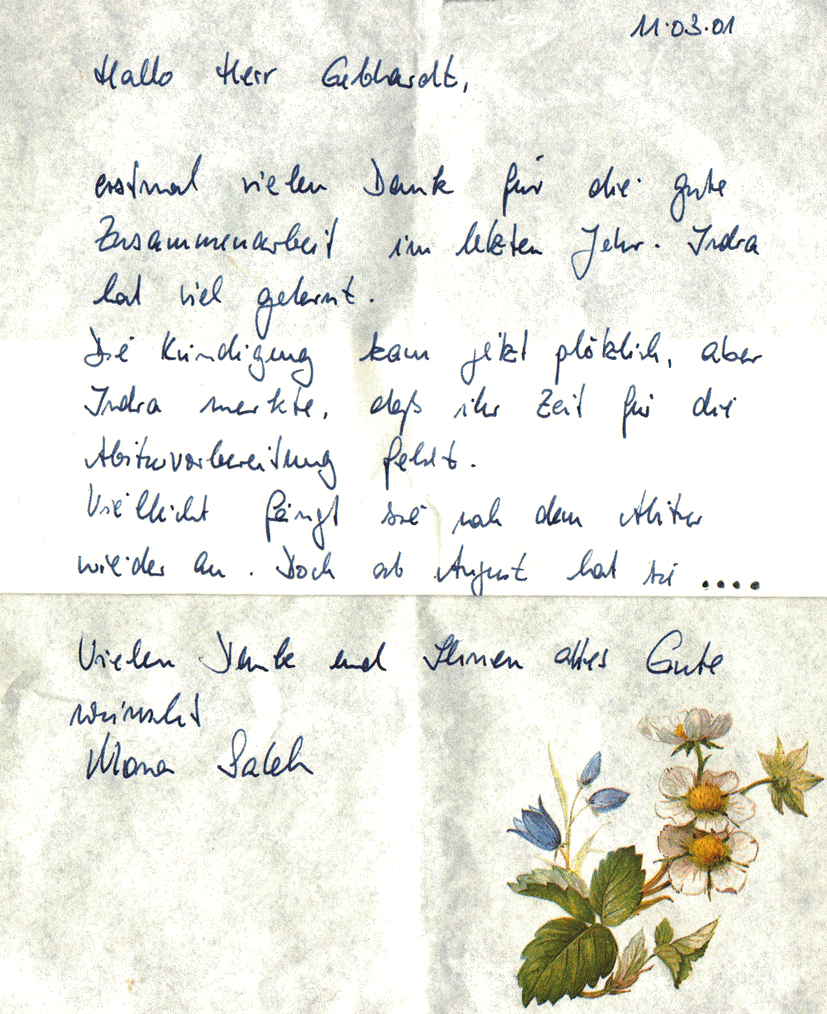 11.03.01
Hallo Herr Gebhardt,
erstmal vielen Dank für die gute
Zusammenarbeit im letzten Jahr. Indra
hat viel gelernt.
Die Kündigung kam jetzt plötzlich, aber
Indra merkte, daß ihr Zeit für die
Abiturvorbereitung fehlt.
Vielleicht fängt sie nach dem Abitur
wieder an. Doch ab August hat sie ....
Vielen Dank und Ihnen alles Gute
wünscht
Mona Saleh